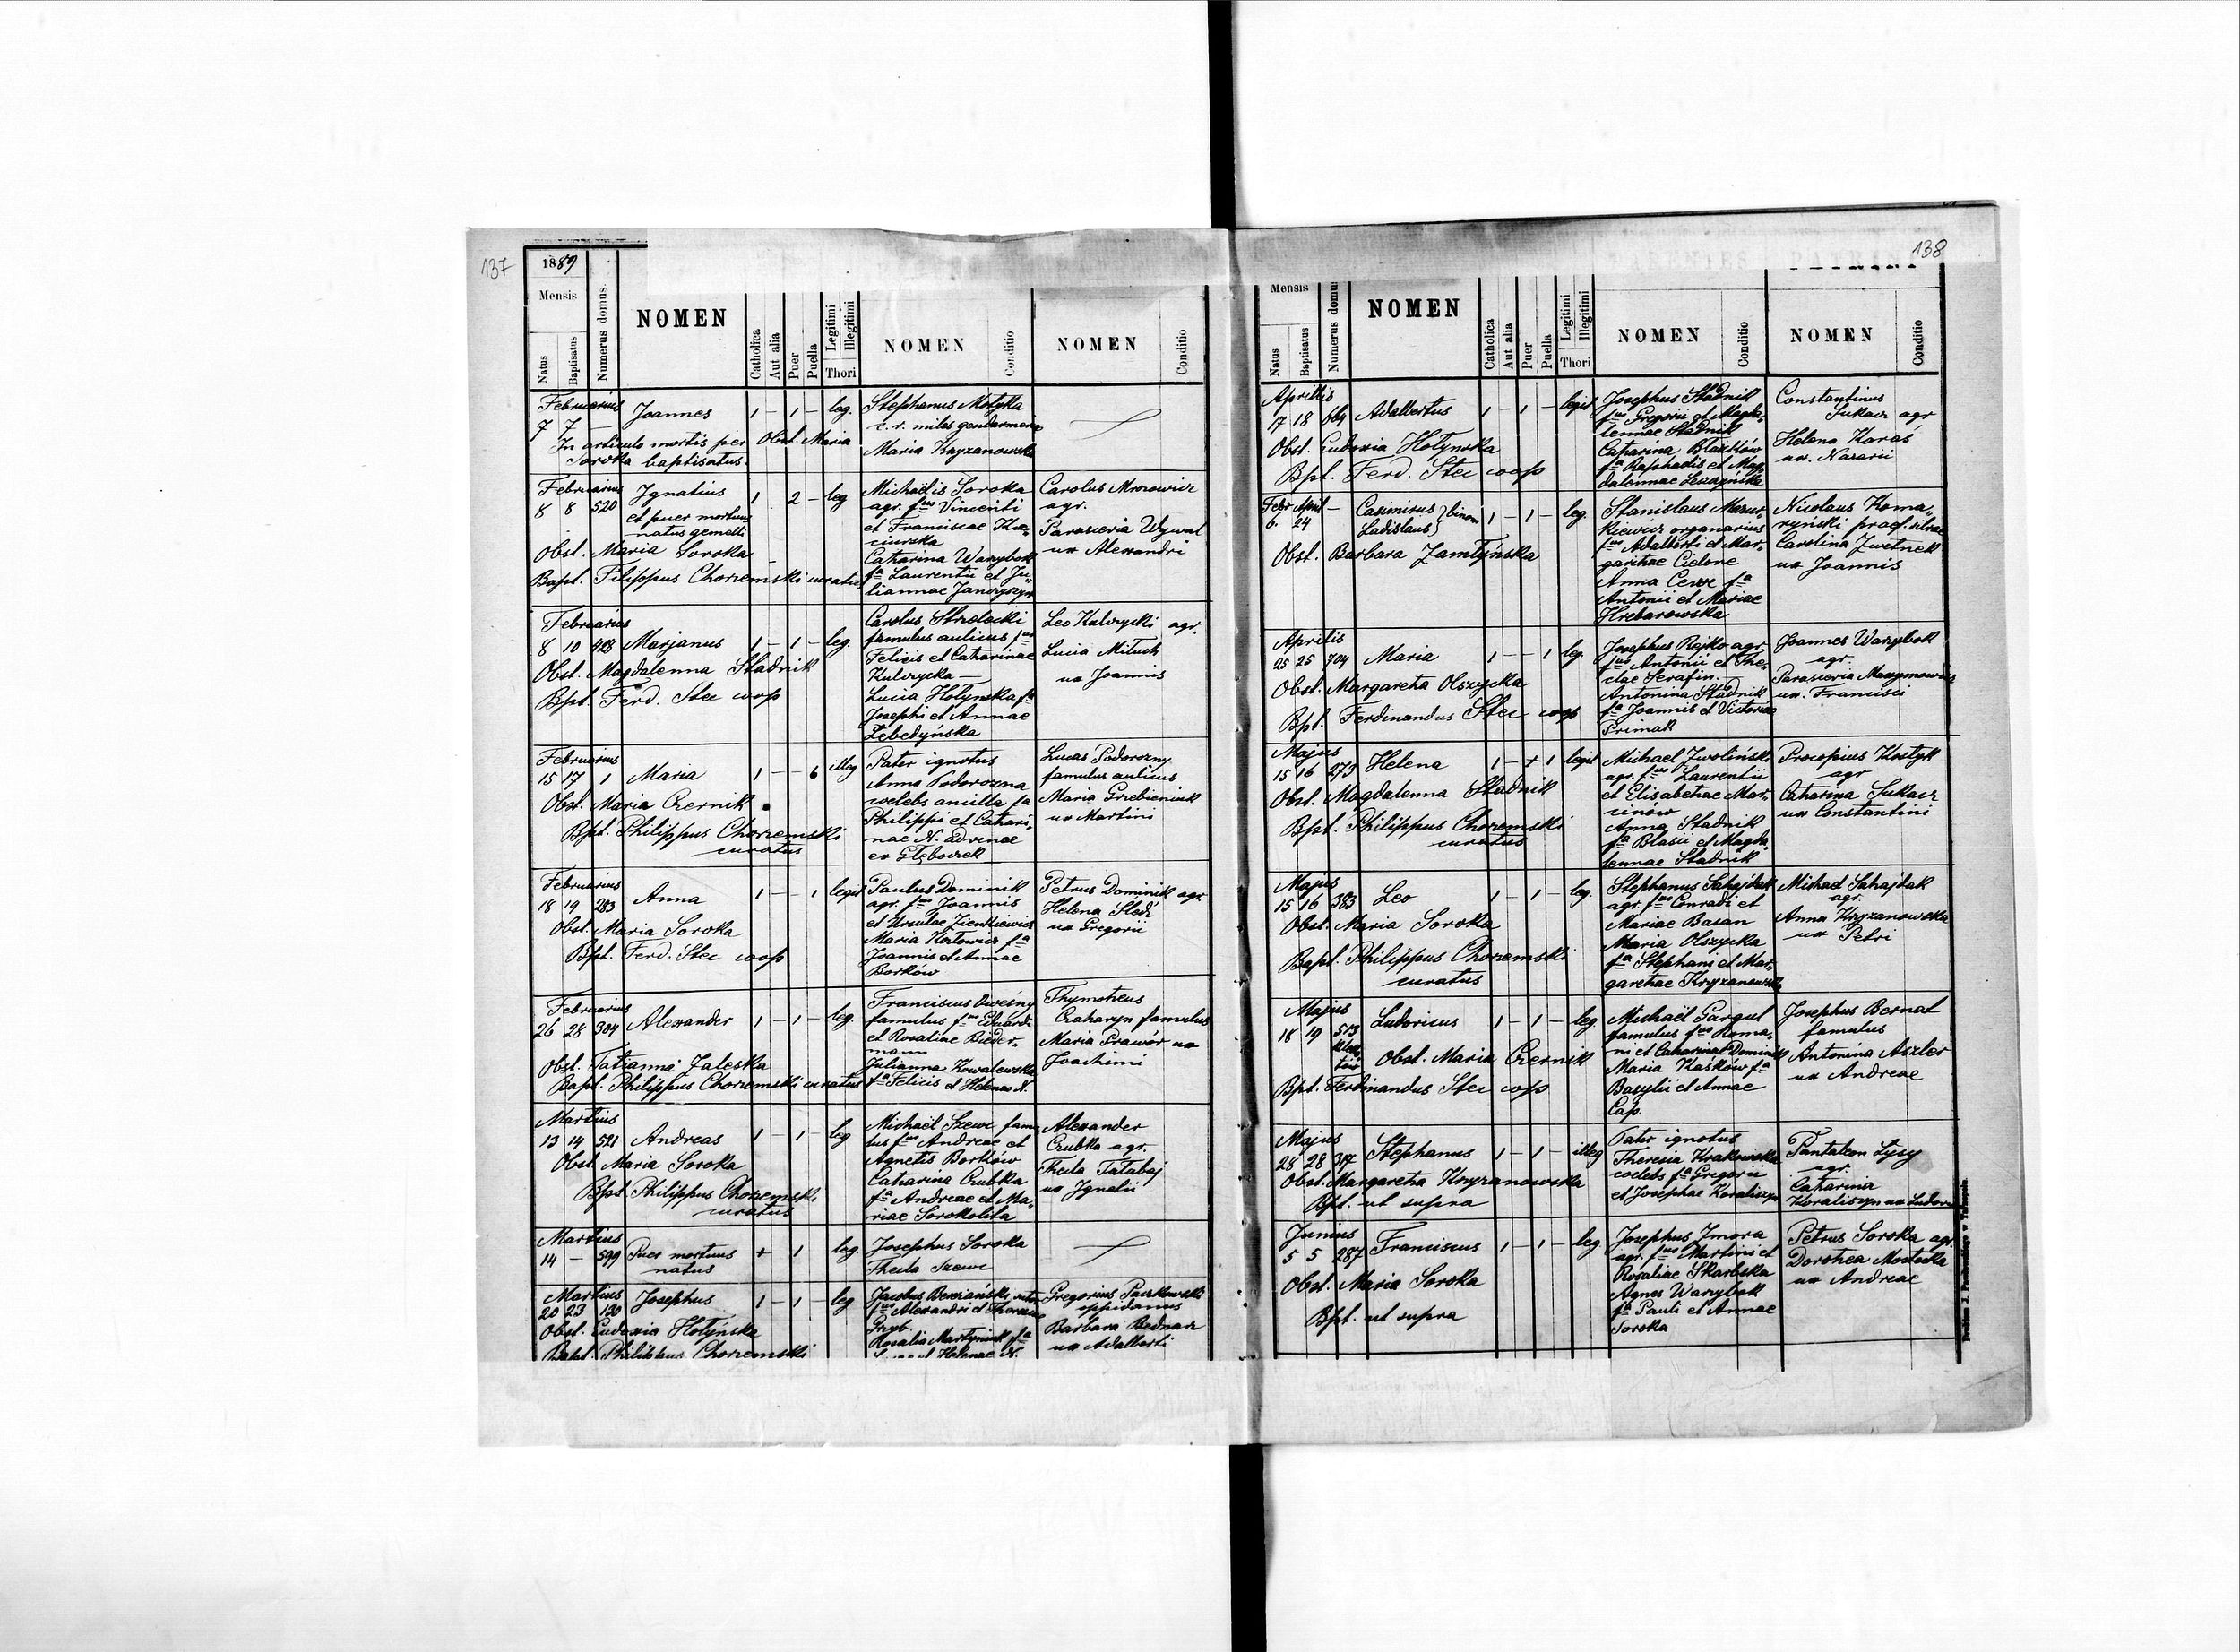 137
1889
Mensis
Natus
Baptisatus
Numerus domus
NOMEN
Catholica
Aut alia
Puer
Puella
Legitimi
Illegitimi
Thori
NOMEN
Conditio
NOMEN
Conditio
Februarius
7 7 — Joannes 1 — 1 — leg.
In articulo mortis per Obst. Maria
Soroka baptisatus.
Stephanus Motyka
c. r. miles gendarmeriae
Maria Kryzanowska
Februarius
8 8 520 Ignatius 1 2 — leg
et puer mortuus
natus gemelli
Obst. Maria Soroka
Bapt. Filippus Chorzemski curatus
Michaëlis Soroka
agr. fus Vincenti
et Franciscae
Catharina Warzybok
fa Laurentii et Ju„
liannae Janczyszyn
Carolus Mrozowicz
agr.
Parascevia Wywal
ux Alexandri
Februarius
8 10 428 Marjanus 1 — 1 — leg.
Obst. Magdalenna Stadnik
Bpt. Ferd. Stec coop
Carolus Strzelecki
famulus aulicus fus
Felicis et Catharinae
Kulczycka —
Lucia Hotynska fa
Josephi et Annae
Lebedyńska
Leo Kulczycki agr.
Lucia Mituch
ux Joannis
Februarius
15 17 1 Maria 1 — — 6 illeg
Obst. Maria Czernik
Bpt. Philippus Chorzemski
curatus
Pater ignotus
Anna Podorozna
coelebs ancilla fa
Philippi et Cathari„
nae N. advenae
ex Głęboczek
Lucas Podorozny
famulus aulicus
Maria Grzebieniuk
ux Martini
Februarius
18 19 283 Anna 1 — — 1 legit
Obst. Maria Soroka
Bpt. Ferd. Stec coop
Paulus Dominik
agr. fus Joannis
et Ursulae Zienkiewicz
Maria Kotowicz fa
Joannis et Annae
Borków
Petrus Dominik agr.
Helena Śledź
ux Gregorii
Februarius
26 28 304 Alexander 1 — 1 — leg.
Obst. Tatianna Zaleska
Bapt. Philippus Chorzemski curatus
Franciscus Owceśny
famulus fus Eduardi
et Rosaliae Bieder„
mann
Julianna Kowalewska
fa Felicis et Helenae N.
Thymoteus
Zacharyn famulus
Maria Prawór ux
Joachimi
Martius
13 14 521 Andreas 1 — 1 — leg
Obst. Maria Soroka
Bpt. Philippus Chorzemski
curatus
Michaël Szewc famu
lus fus Andreae et
Agnetis Borków
Catharina Czubka
fa Andreae et Ma„
riae Sorokolita
Alexander
Czubka agr.
Thecla Tatabaj
ux Ignatii
Martius
14 — 599 Puer mortuus + 1 leg.
natus
Josephus Soroka
Thecla Szewc
Martius
20 23 130 Josephus 1 — 1 — leg
Obst. Eudoxia Hotyńska
Bapt. Philippus Chorzemski
Jacobus Berziański sutor
fus Alexandri et Theresiae
Grzyb.
Rosalia Martyniuk fa
Helenae N.
Gregorius Paczkowski
oppidanus
Barbara Bednarz
ux Adalberti
138
PATRINI
Mensis
Natus
Baptisatus
Numerus domus
NOMEN
Catholica
Aut alia
Puer
Puella
Legitimi
Illegitimi
Thori
NOMEN
Conditio
NOMEN
Conditio
Aprilis
17 18 664 Adalbertus 1 — 1 — legit
Obst. Eudoxia Hotynska
Bpt. Ferd. Stec coop
Josephus Stadnik
fus Gregorii et Magda„
lennae Stadnik
Catharina Blazków
fa Raphaelis et Mag„
dalennae Leszczyńska
Constantinus
Sukacz agr
Helena Karaś
ux. Nazarii
Febr April —
6. 24 Casimirus } binom 1 — 1 — leg.
Ladislaus
Obst. Barbara Zamłyńska
Stanislaus Mazur„
kiewicz organarius
fus Adalberti et Mar„
garethae Cielone
Anna Cewe fa
Antonii et Mariae
Hrebarowska
Nicolaus Koma„
ryński praef. silvae
Carolina Zwetnek
ux Joannis
Aprilis
25 25 704 Maria 1 — — 1 leg.
Obst. Margaretha Olszycka
Bpt. Ferdinandus Stec coop
Josephus Rejko agr.
fus Antonii et The„
clae Serafin.
Antonina Stadnik
fa Joannis et Victoriae
Primak
Joannes Warzybok
agr.
Parascevia Maxymowicz
ux. Francisci
Majus
15 16 273 Helena 1 — + 1 legit
Obst. Magdalenna Stadnik
Bpt. Philippus Chorzemski
curatus
Michael Zwoliński
agr. fus Laurentii
et Elisabethae Mar„
cinów
Anna Stadnik
fa Blasii et Magda„
lennae Stadnik
Procopius Kostyk
agr
Catharina Sukacz
ux Constantini
Majus
15 16 383 Leo 1 — 1 — leg.
Obst. Maria Soroka
Bapt. Philippus Chorzemski
curatus
Stephanus Sahajdak
agr. fus Conradi et
Mariae Basan
Maria Olszycka
fa Stephani et Mar„
garethae Kryzanowska
Michael Sahajdak
agr.
Anna Kryzanowska
ux Petri
Majus
18 19 573 Ludovicus 1 — 1 — leg
Obst. Maria Czernik
Bpt. Ferdinandus Stec coop
Michaël Gargul
famulus fus Roma„
ni et Catharinae Dominik
Maria Kaśków fa
Basylii et Annae
Cap.
Josephus Bernat
famulus
Antonina Aszler
ux Andreae
Majus
28 28 317 Stephanus 1 — 1 — illeg
Obst. Margaretha Kryzanowska
Bpt. ut supra
Pater ignotus
Theresia Krakowska
coelebs fa Gregorii
et Josephae Koraliszyn
Pantaleon Łysy
agr.
Catharina
Koraliszyn ux Ludovici
Junius
5 5 287 Franciscus 1 — 1 — leg
Obst. Maria Soroka
Bpt. ut supra
Josephus Zmora
agr. fus Martini et
Rosaliae Skarbska
Agnes Warzybok
fa Pauli et Annae
Soroka
Petrus Soroka agr.
Dorothea Mostecka
ux Andreae